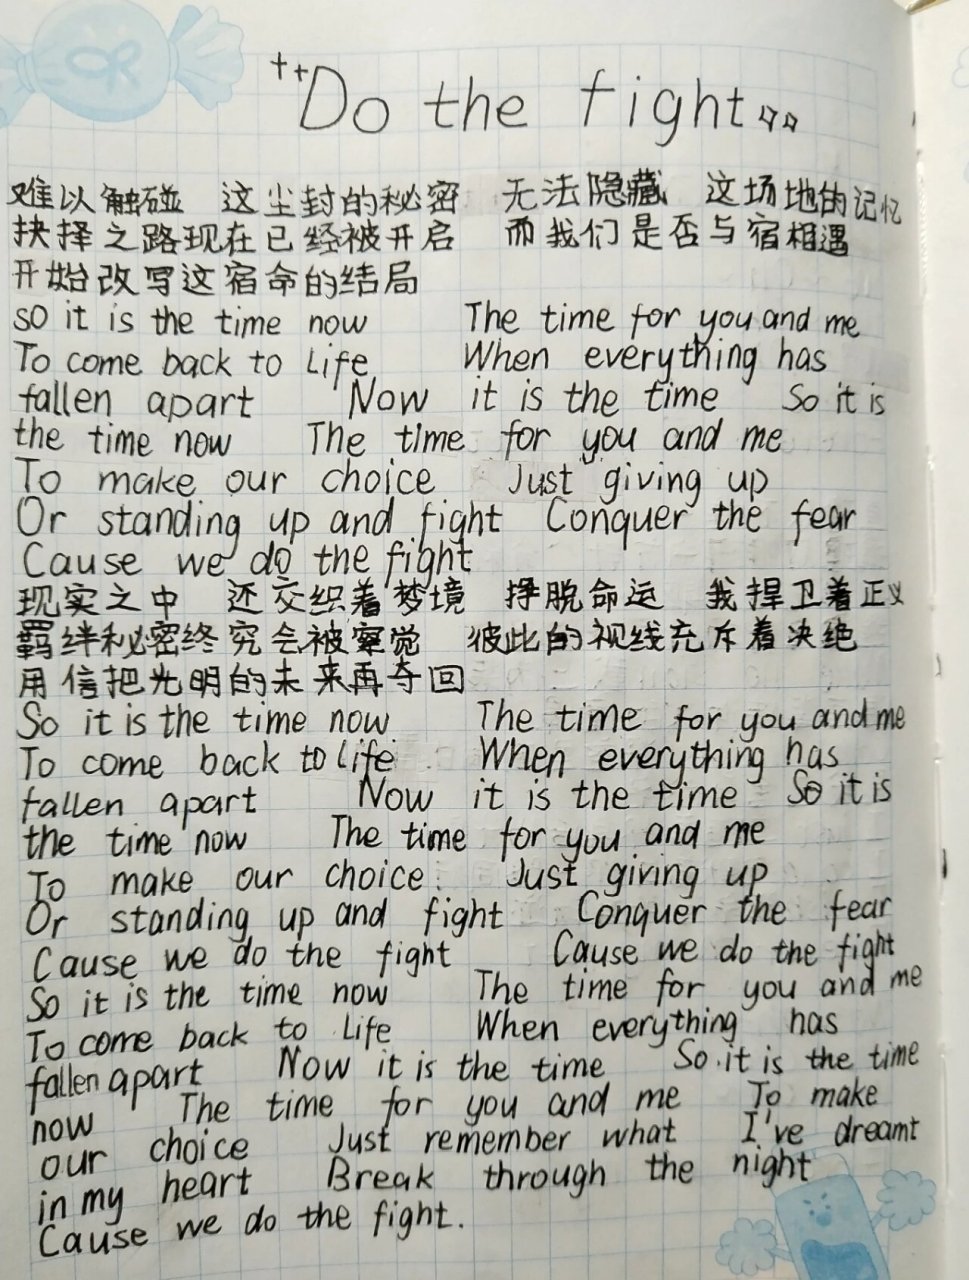 Do the fight
难以触碰 这尘封的秘密 无法隐藏 这场地的记忆
抉择之路现在已经被开启 而我们是否与宿相遇
开始改写这宿命的结局
so it is the time now The time for you and me
To come back to Life When everything has
fallen apart Now it is the time So it is
the time now The time for you and me
To make our choice Just giving up
Or standing up and fight Conquer the fear
Cause we do the fight
现实之中 还交织着梦境 挣脱命运 我捍卫着正义
羁绊秘密终究会被察觉 彼此的视线充斥着决绝
用信把光明的未来再夺回
So it is the time now The time for you and me
To come back to Life When everything has
fallen apart Now it is the time So it is
the time now The time for you and me
To make our choice Just giving up
Or standing up and fight Conquer the fear
Cause we do the fight Cause we do the fight
So it is the time now The time for you and me
To come back to Life When everything has
fallen apart Now it is the time So it is the time
now The time for you and me To make
our choice Just remember what I've dreamt
in my heart Break through the night
Cause we do the fight.